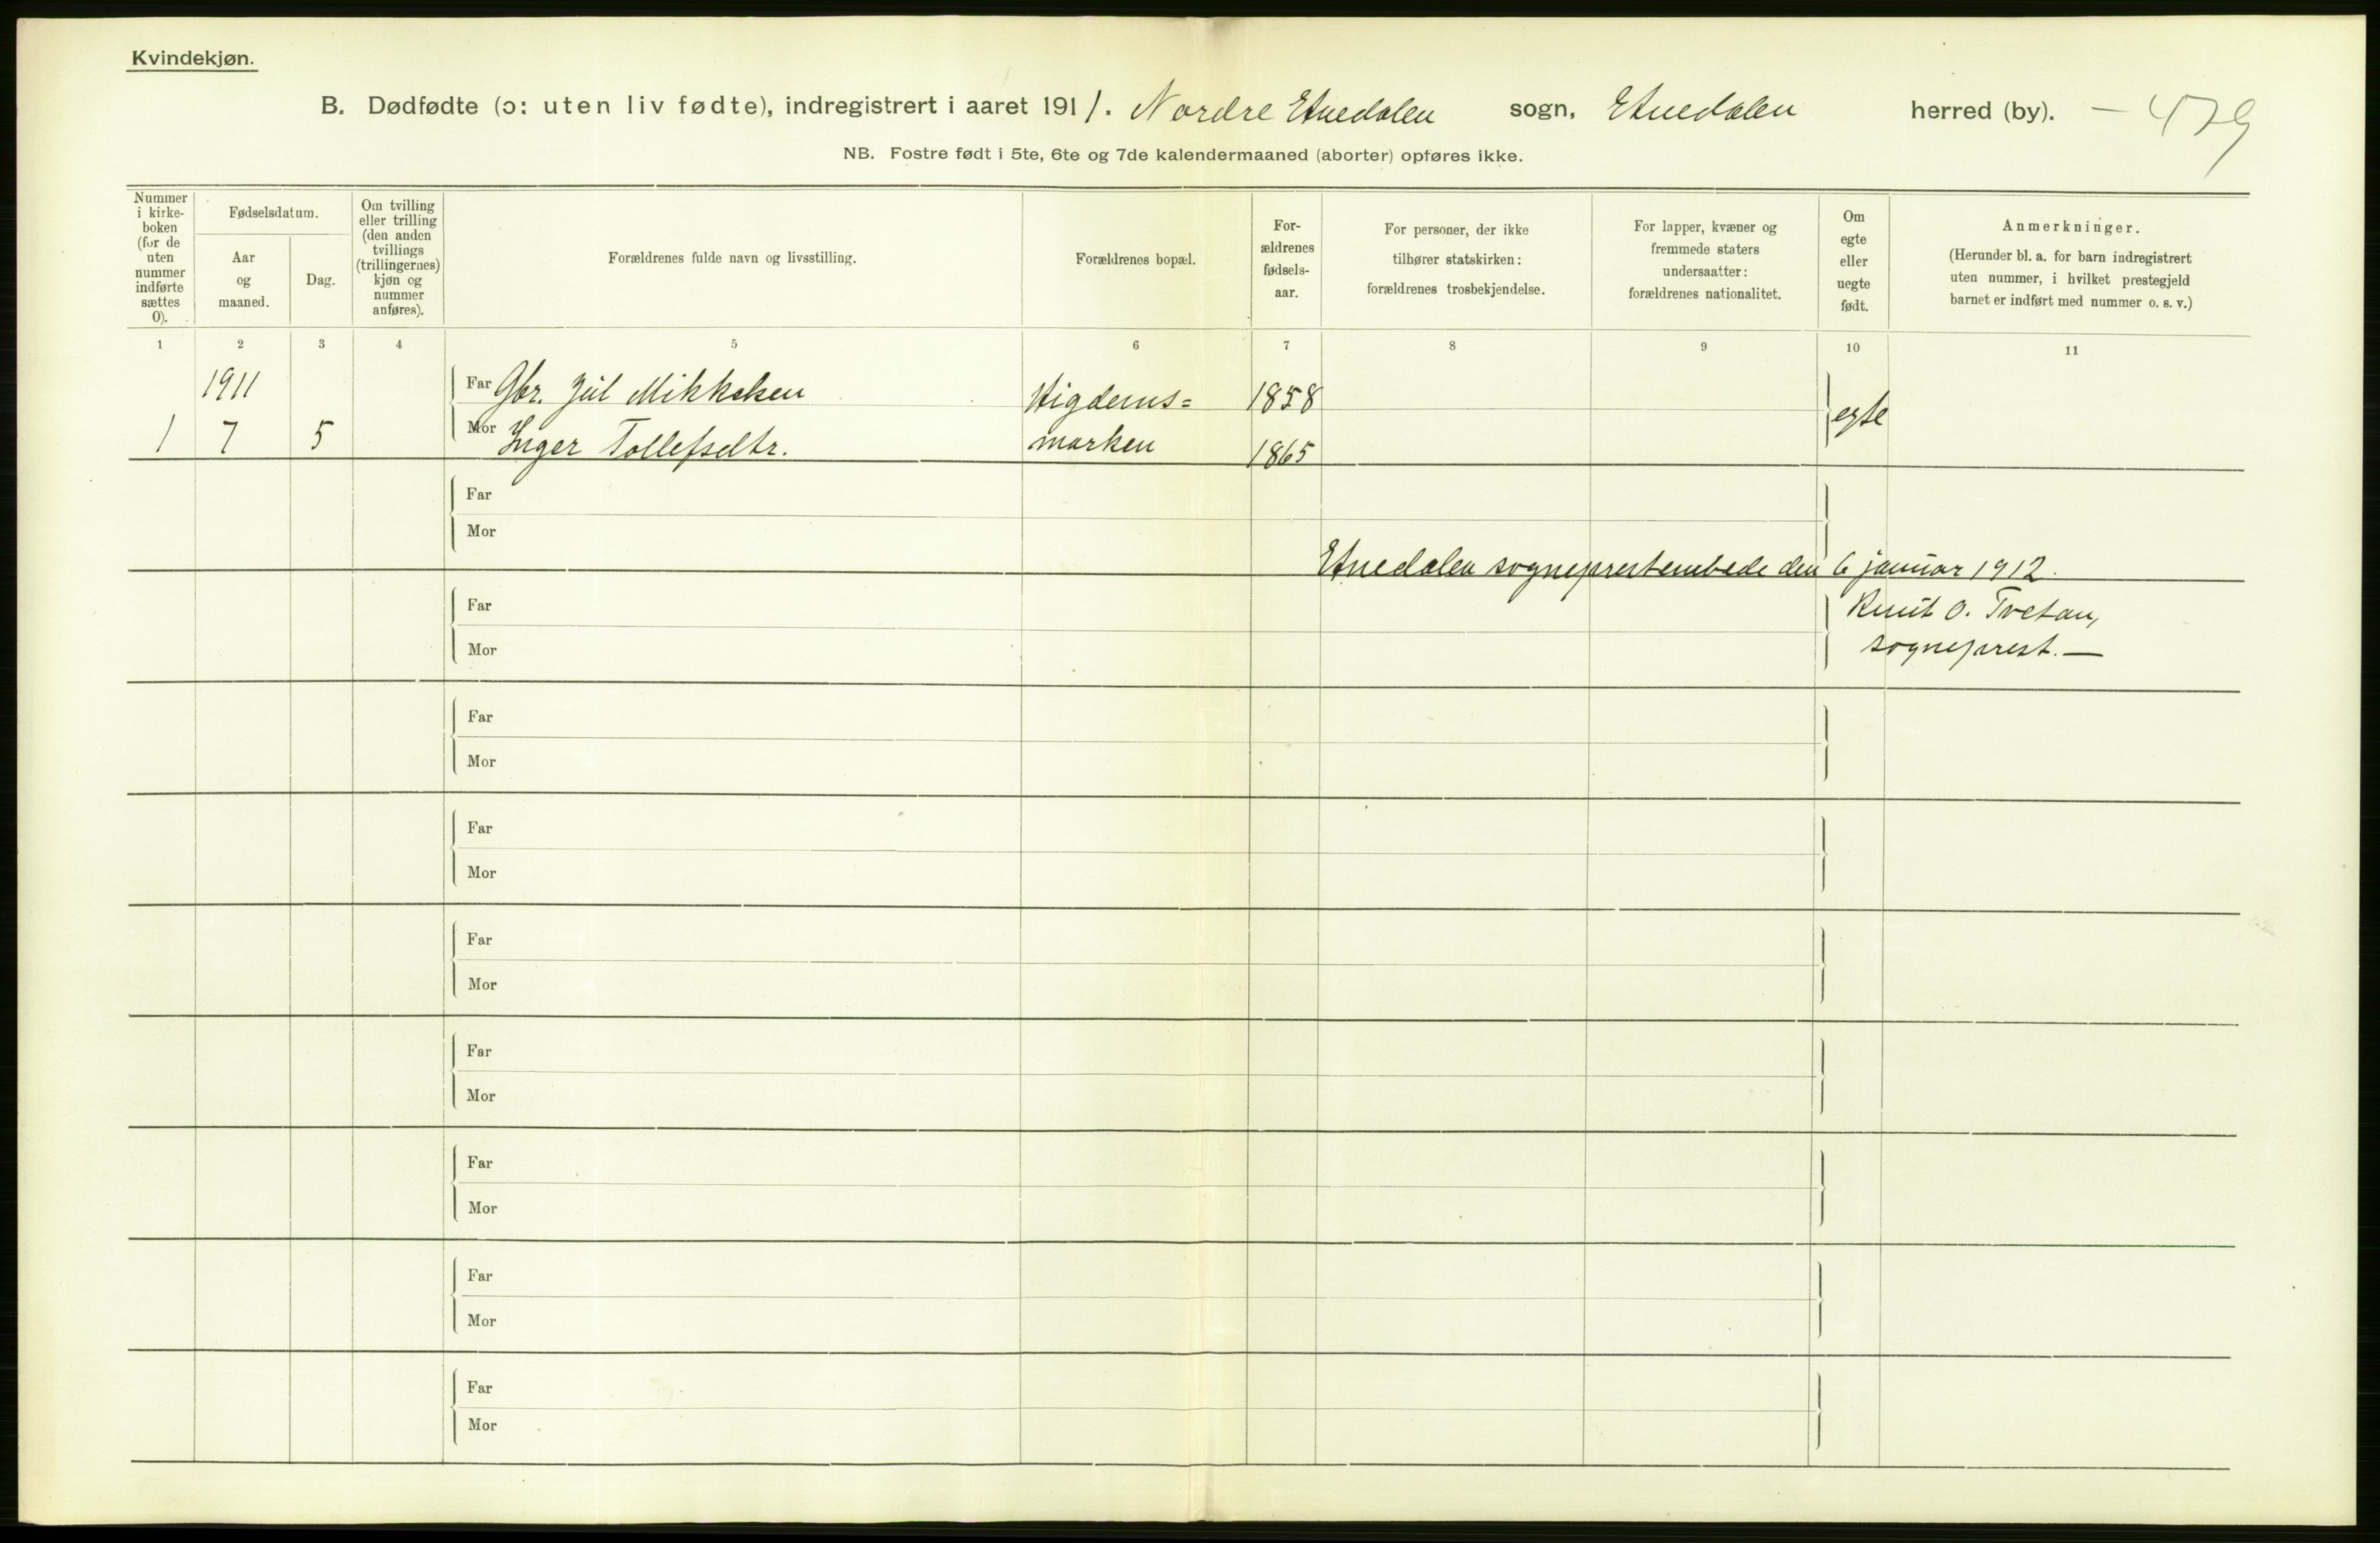 Kvindekjøn.
B. Dødfødte (ɔ: uten liv fødte), indregistrert i aaret 1911. Nordre Etnedalen sogn, Etnedalen herred (by). — 479
NB. Fostre født i 5te, 6te og 7de kalendermaaned (aborter) opføres ikke.
Nummer i kirke-boken (for de uten nummer indførte sættes 0).
Fødselsdatum.
Aar og maaned.
Dag.
Om tvilling eller trilling (den anden tvillings (trillingernes) kjøn og nummer anføres).
Forældrenes fulde navn og livsstilling.
Forældrenes bopæl.
For-ældrenes fødsels-aar.
For personer, der ikke tilhører statskirken: forældrenes trosbekjendelse.
For lapper, kvæner og fremmede staters undersaatter: forældrenes nationalitet.
Om egte eller uegte født.
Anmerkninger.
(Herunder bl. a. for barn indregistrert uten nummer, i hvilket prestegjeld barnet er indført med nummer o. s. v.)
1 2 3 4 5 6 7 8 9 10 11
1911 Far Gbr. Jul Mikkelsen 1858
egte
1 7 5 Mor Inger Tollefsdtr. marken 1865
Far
Mor
Etnedalen sogneprestembede den 6 januar 1912.
Far
Knut O. Tvetan,
Mor
sogneprest. —
Far
Mor
Far
Mor
Far
Mor
Far
Mor
Far
Mor
Far
Mor
Far
Mor